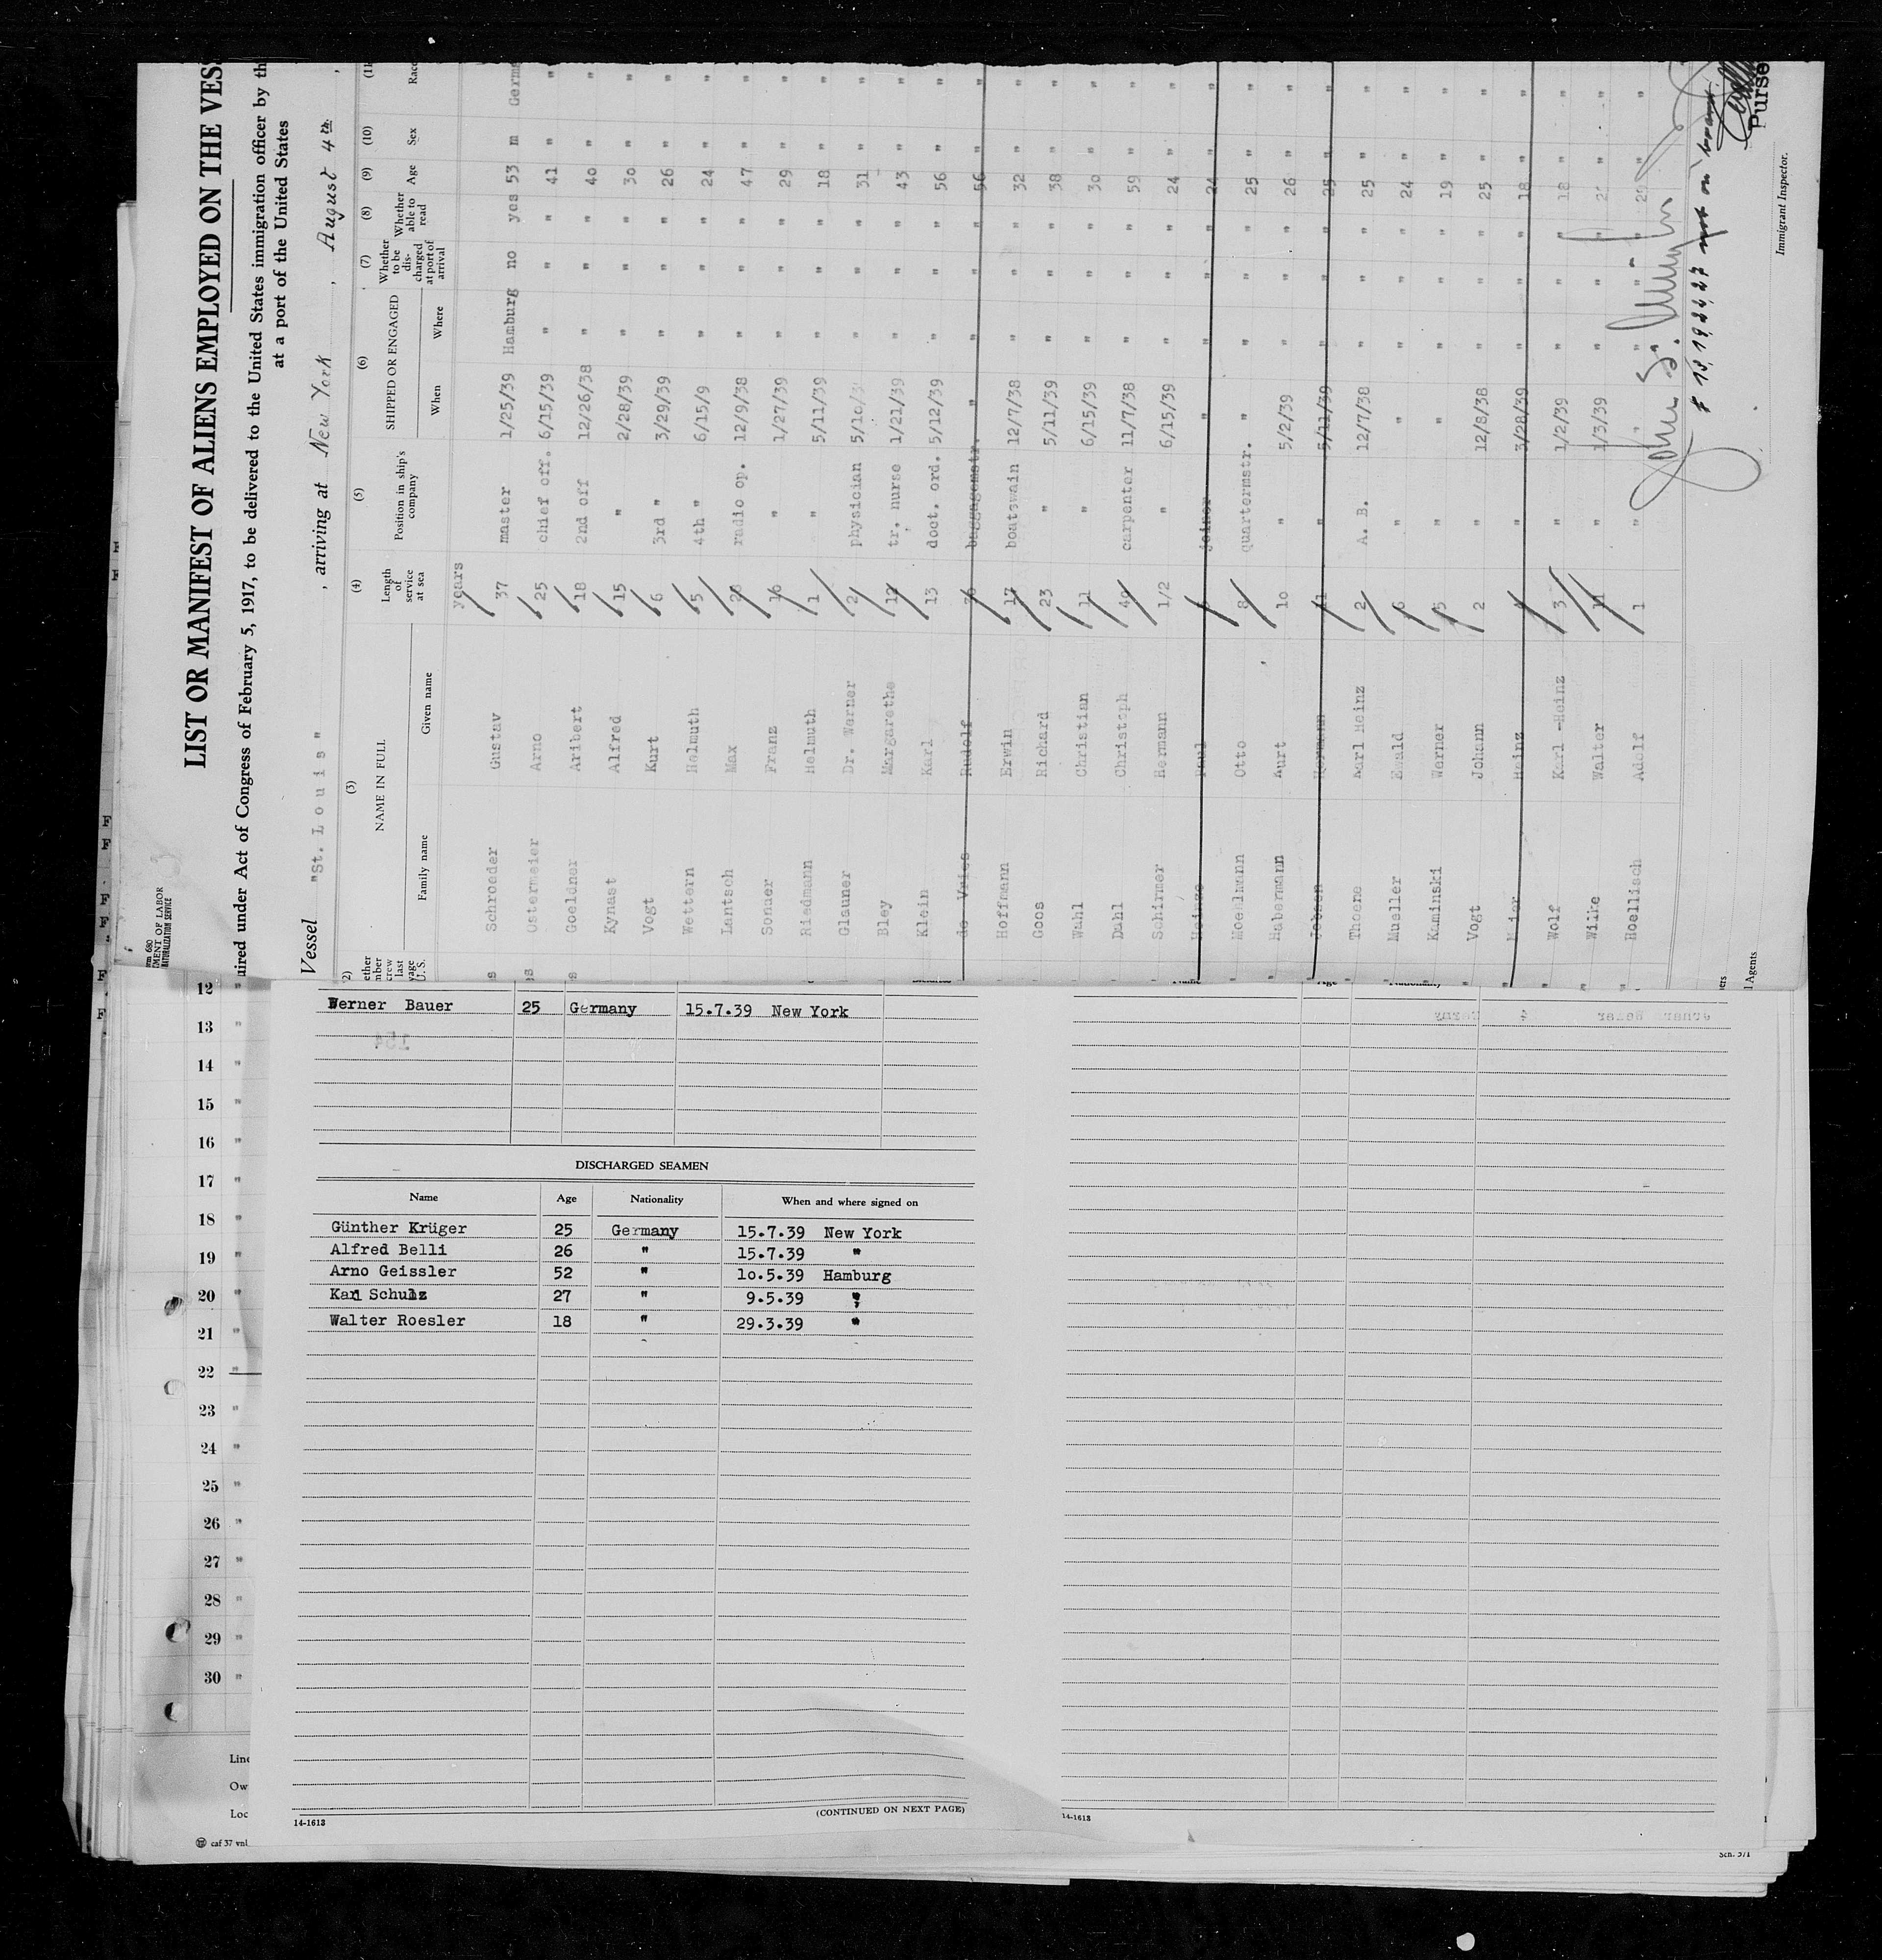 LIST OR MANIFEST OF ALIENS EMPLOYED ON THE VES
uired under Act of Congress of February 5, 1917, to be delivered to the United States immigration officer by th
at a port of the United States
Vessel "St. Louis" , arriving at New York , August 4th ,
rm 680
MENT OF LABOR
NATURALIZATION SERVICE
2) (3) (4) (5) (6) (7) (8) (9) (10) (11
ether
mber
crew
last
yage
U.S.
NAME IN FULL
Family name Given name
Length of service at sea
Position in ship's company
SHIPPED OR ENGAGED
When Where
Whether to be discharged at port of arrival
Whether able to read
Age Sex Race
years
s Schroeder Gustav 37 master 1/25/39 Hamburg no yes 53 m Germa
s Ostermeier Arno 25 chief off. 6/15/39 " " " 41 " "
s Goeldner Aribert 18 2nd off 12/26/38 " " " 40 " "
Kynast Alfred 15 " 2/28/39 " " " 30 " "
Vogt Kurt 6 3rd " 3/29/39 " " " 26 " "
Wettern Helmuth 5 4th " 6/15/9 " " " 24 " "
Lantsch Max radio op. 12/9/38 " " " 47 " "
Sonner Franz 16 " 1/27/39 " " " 29 " "
Riedmann Helmuth 1 " 5/11/39 " " " 18 " "
Glauner Dr. Werner 2 physician 5/10/3 " " " 31 " "
Bley Margarethe 12 tr. nurse 1/21/39 " " " 43 " "
Klein Karl 13 doct. ord. 5/12/39 " " " 56 " "
de Vries Rudolf baggagemstr. " " " " 56 " "
Hoffmann Erwin 17 boatswain 12/7/38 " " " 32 " "
Goos Richard 23 " 5/11/39 " " " 38 " "
Wahl Christian 11 " 6/15/39 " " " 30 " "
Duhl Christoph 40 carpenter 11/7/38 " " " 59 " "
Schirmer Hermann 1/2 " 6/15/39 " " " 24 " "
Heinze Paul joiner " " " " 24 " "
Moehlmann Otto 8 quartermstr. " " " " 25 " "
Habermann Kurt 10 " 5/2/39 " " " 26 " "
Hermann 11 " 5/11/39 " " " 25 " "
Thoene Karl Heinz 2 A. B. 12/7/38 " " " 25 " "
Mueller Ewald 6 " " " " " 24 " "
Kaminski Werner 5 " " " " " 19 " "
Vogt Johann 2 " 12/8/38 " " " 25 " "
Meier Heinz " 3/28/39 " " " 18 " "
Wolf Karl-Heinz 3 " 1/2/39 " " " 18 " "
Wilke Walter 11 " 1/3/39 " " " " "
Hoellisch Adolf 1 " " " " " 20 " "
# 13, 19, 22, 27 not on
Purse
Immigrant Inspector.
ers
l Agents
12
13 "
14 "
15 "
16 "
17 "
18 "
19 "
20 "
21 "
22 "
23 "
24 "
25 "
26 "
27 "
28 "
29 "
30 "
Line
Ow
Loc
caf 37 vnl
Werner Bauer 25 Germany 15.7.39 New York
154
DISCHARGED SEAMEN
Name Age Nationality When and where signed on
Günther Krüger 25 Germany 15.7.39 New York
Alfred Belli 26 " 15.7.39 "
Arno Geissler 52 " 10.5.39 Hamburg
Karl Schulz 27 " 9.5.39 "
Walter Roesler 18 " 29.3.39 "
(CONTINUED ON NEXT PAGE)
14-1613
14-1613
Sch. 371